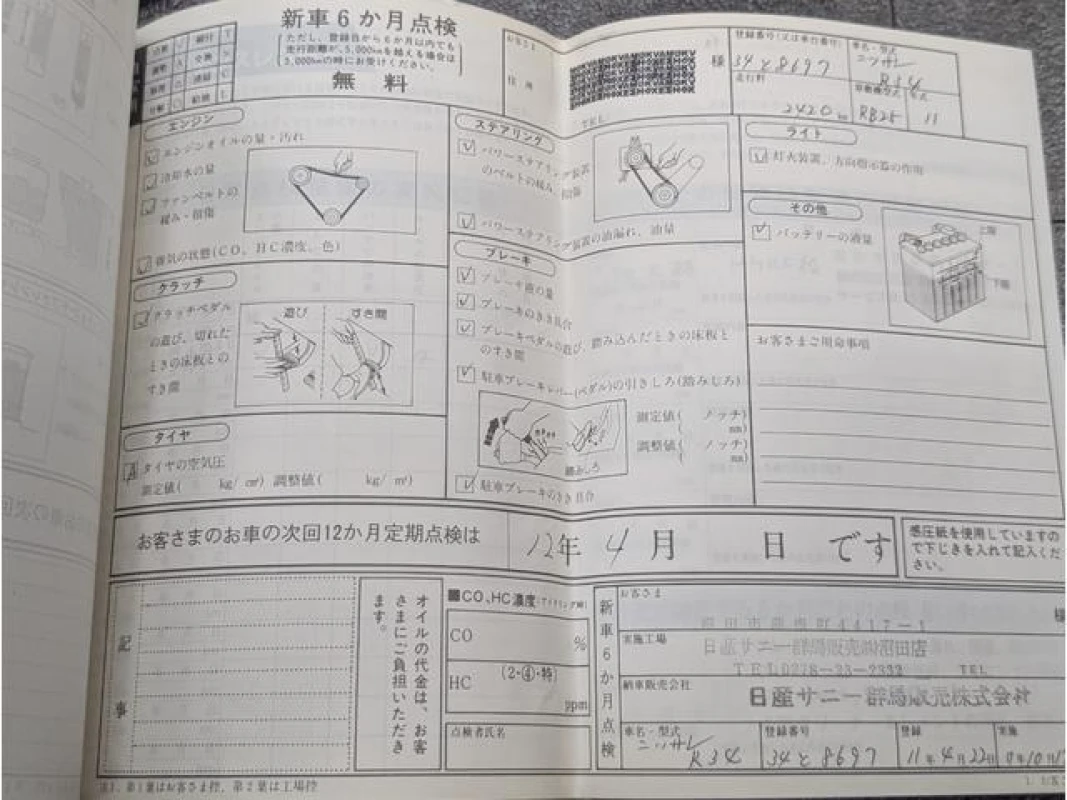 新車6か月点検
ただし、登録日から6か月以内でも
走行距離が、5,000kmを越える場合は
5,000kmの時にお受けください。
無料
お客さま
住所
様
TEL
登録番号(又は車台番号)
34と8697
車名・型式
ニッサン
R34
走行粁
2420 km
原動機型式
RB25
年式
11
エンジン
エンジンオイルの量・汚れ
冷却水の量
ファンベルトの
緩み・損傷
排気の状態(CO、HC濃度、色)
クラッチ
クラッチペダル
の遊び、切れた
ときの床板との
すき間
遊び
すき間
タイヤ
タイヤの空気圧
測定値( kg/c㎡) 調整値( kg/㎡)
ステアリング
パワーステアリング装置
のベルトの緩み、損傷
パワーステアリング装置の油漏れ、油量
ブレーキ
ブレーキ液の量
ブレーキのきき具合
ブレーキペダルの遊び、踏み込んだときの床板と
のすき間
駐車ブレーキレバー(ペダル)の引きしろ(踏みしろ)
測定値( ノッチ)
( mm)
調整値( ノッチ)
( mm)
踏みしろ
駐車ブレーキのきき具合
ライト
灯火装置、方向指示器の作用
その他
バッテリーの液量
上限
下限
お客さまご用命事項
お客さまのお車の次回12か月定期点検は
12年 4月 日 です
感圧紙を使用しています
ので下じきを入れて記入くだ
さい。
記事
オイルの代金は、お客
さまにご負担いただき
ます。
CO、HC濃度(アイドリング時)
CO
%
HC
(2・④・特)
ppm
点検者氏名
新車6か月点検
お客さま
様
4417-1
実施工場
日産サニー群馬販売㈱沼田店
TEL0278-23-2332
TEL
納車販売会社
日産サニー群馬販売株式会社
車名・型式
ニッサン
R34
登録番号
34と8697
登録
11年4月22日
実施
注1. 第1葉はお客さま控、第2葉は工場控